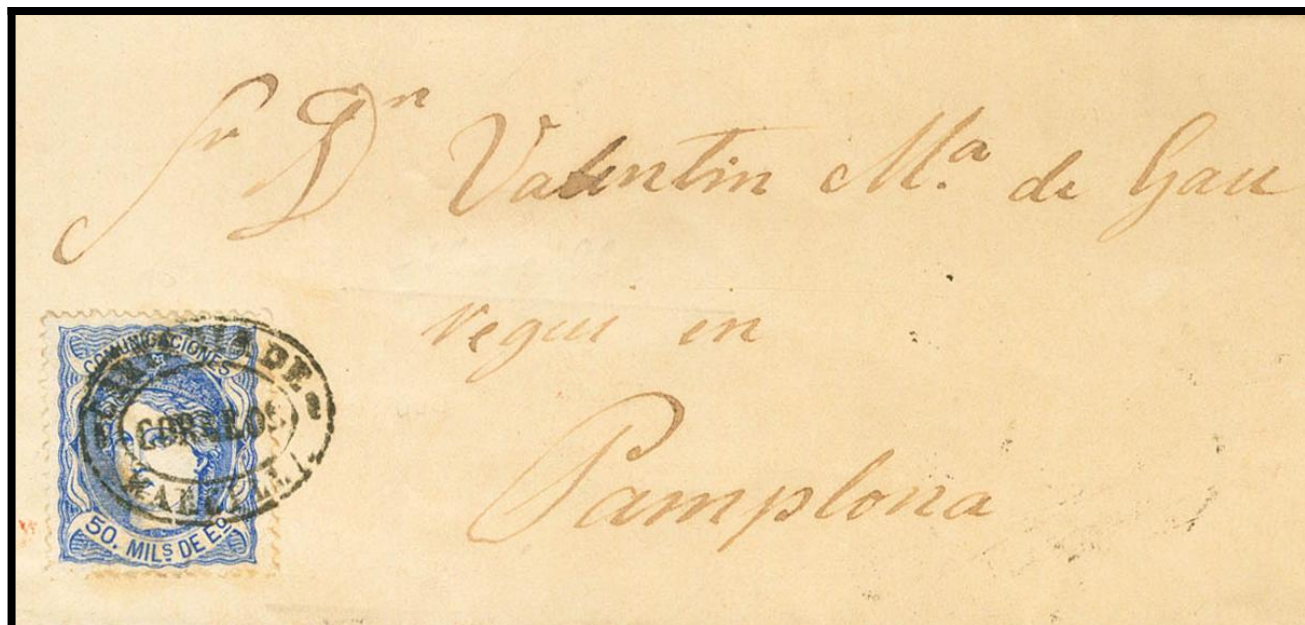 Sr Dn Valentin Ma. de Gau
vegui en
Pamplona
COMUNICACIONES
DE
CORREOS
50. MILS DE Eo